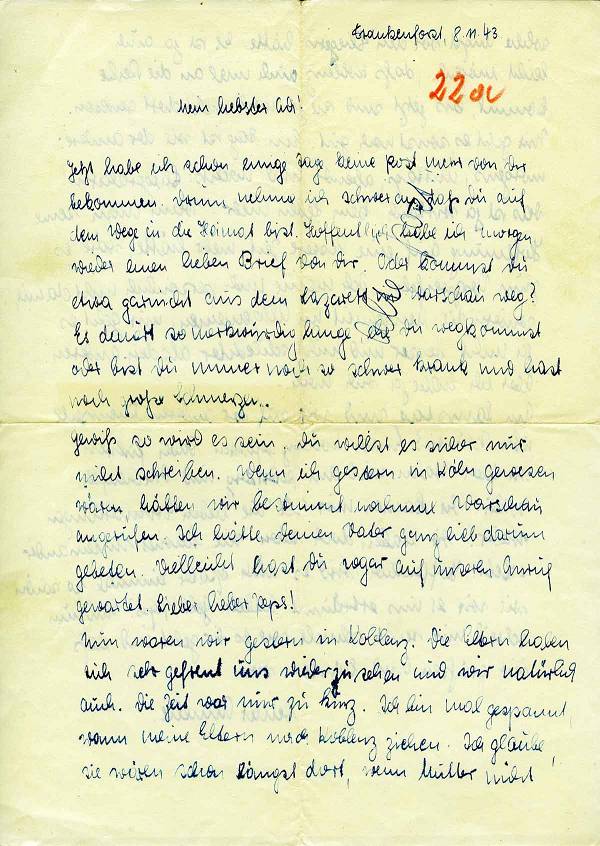 Frankenforst, 8.11.43
22a
Mein liebster Adi!
Jetzt habe ich schon einige Tage keine Post mehr von Dir
bekommen. Darum nehme ich schwer an, daß Du auf
dem Wege in die Heimat bist. Hoffentlich habe ich morgen
wieder einen lieben Brief von Dir. Oder kommst Du
etwa garnicht aus dem Lazarett Warschau weg?
Es dauert so merkwürdig lange, bis Du wegkommst
oder bist Du immer noch so schwer krank und hast
noch große Schmerzen..
Gewiß so wird es sein, Du willst es sicher nur
nicht schreiben. Wenn ich gestern in Köln gewesen
wäre, hätten wir bestimmt nochmal Warschau
angerufen. Ich hätte Deinen Vater ganz lieb darum
gebeten. Vielleicht hast Du sogar auf unseren Anruf
gewartet. Lieber lieber !
Nun waren wir gestern in Koblenz. Die Eltern haben
sich sehr gefreut uns wiederzusehen und wir natürlich
auch. Die Zeit war nur zu kurz. Ich bin mal gespannt,
wann meine Eltern nach Koblenz ziehen. Ich glaube,
sie wären schon längst dort, wenn Mutter nicht